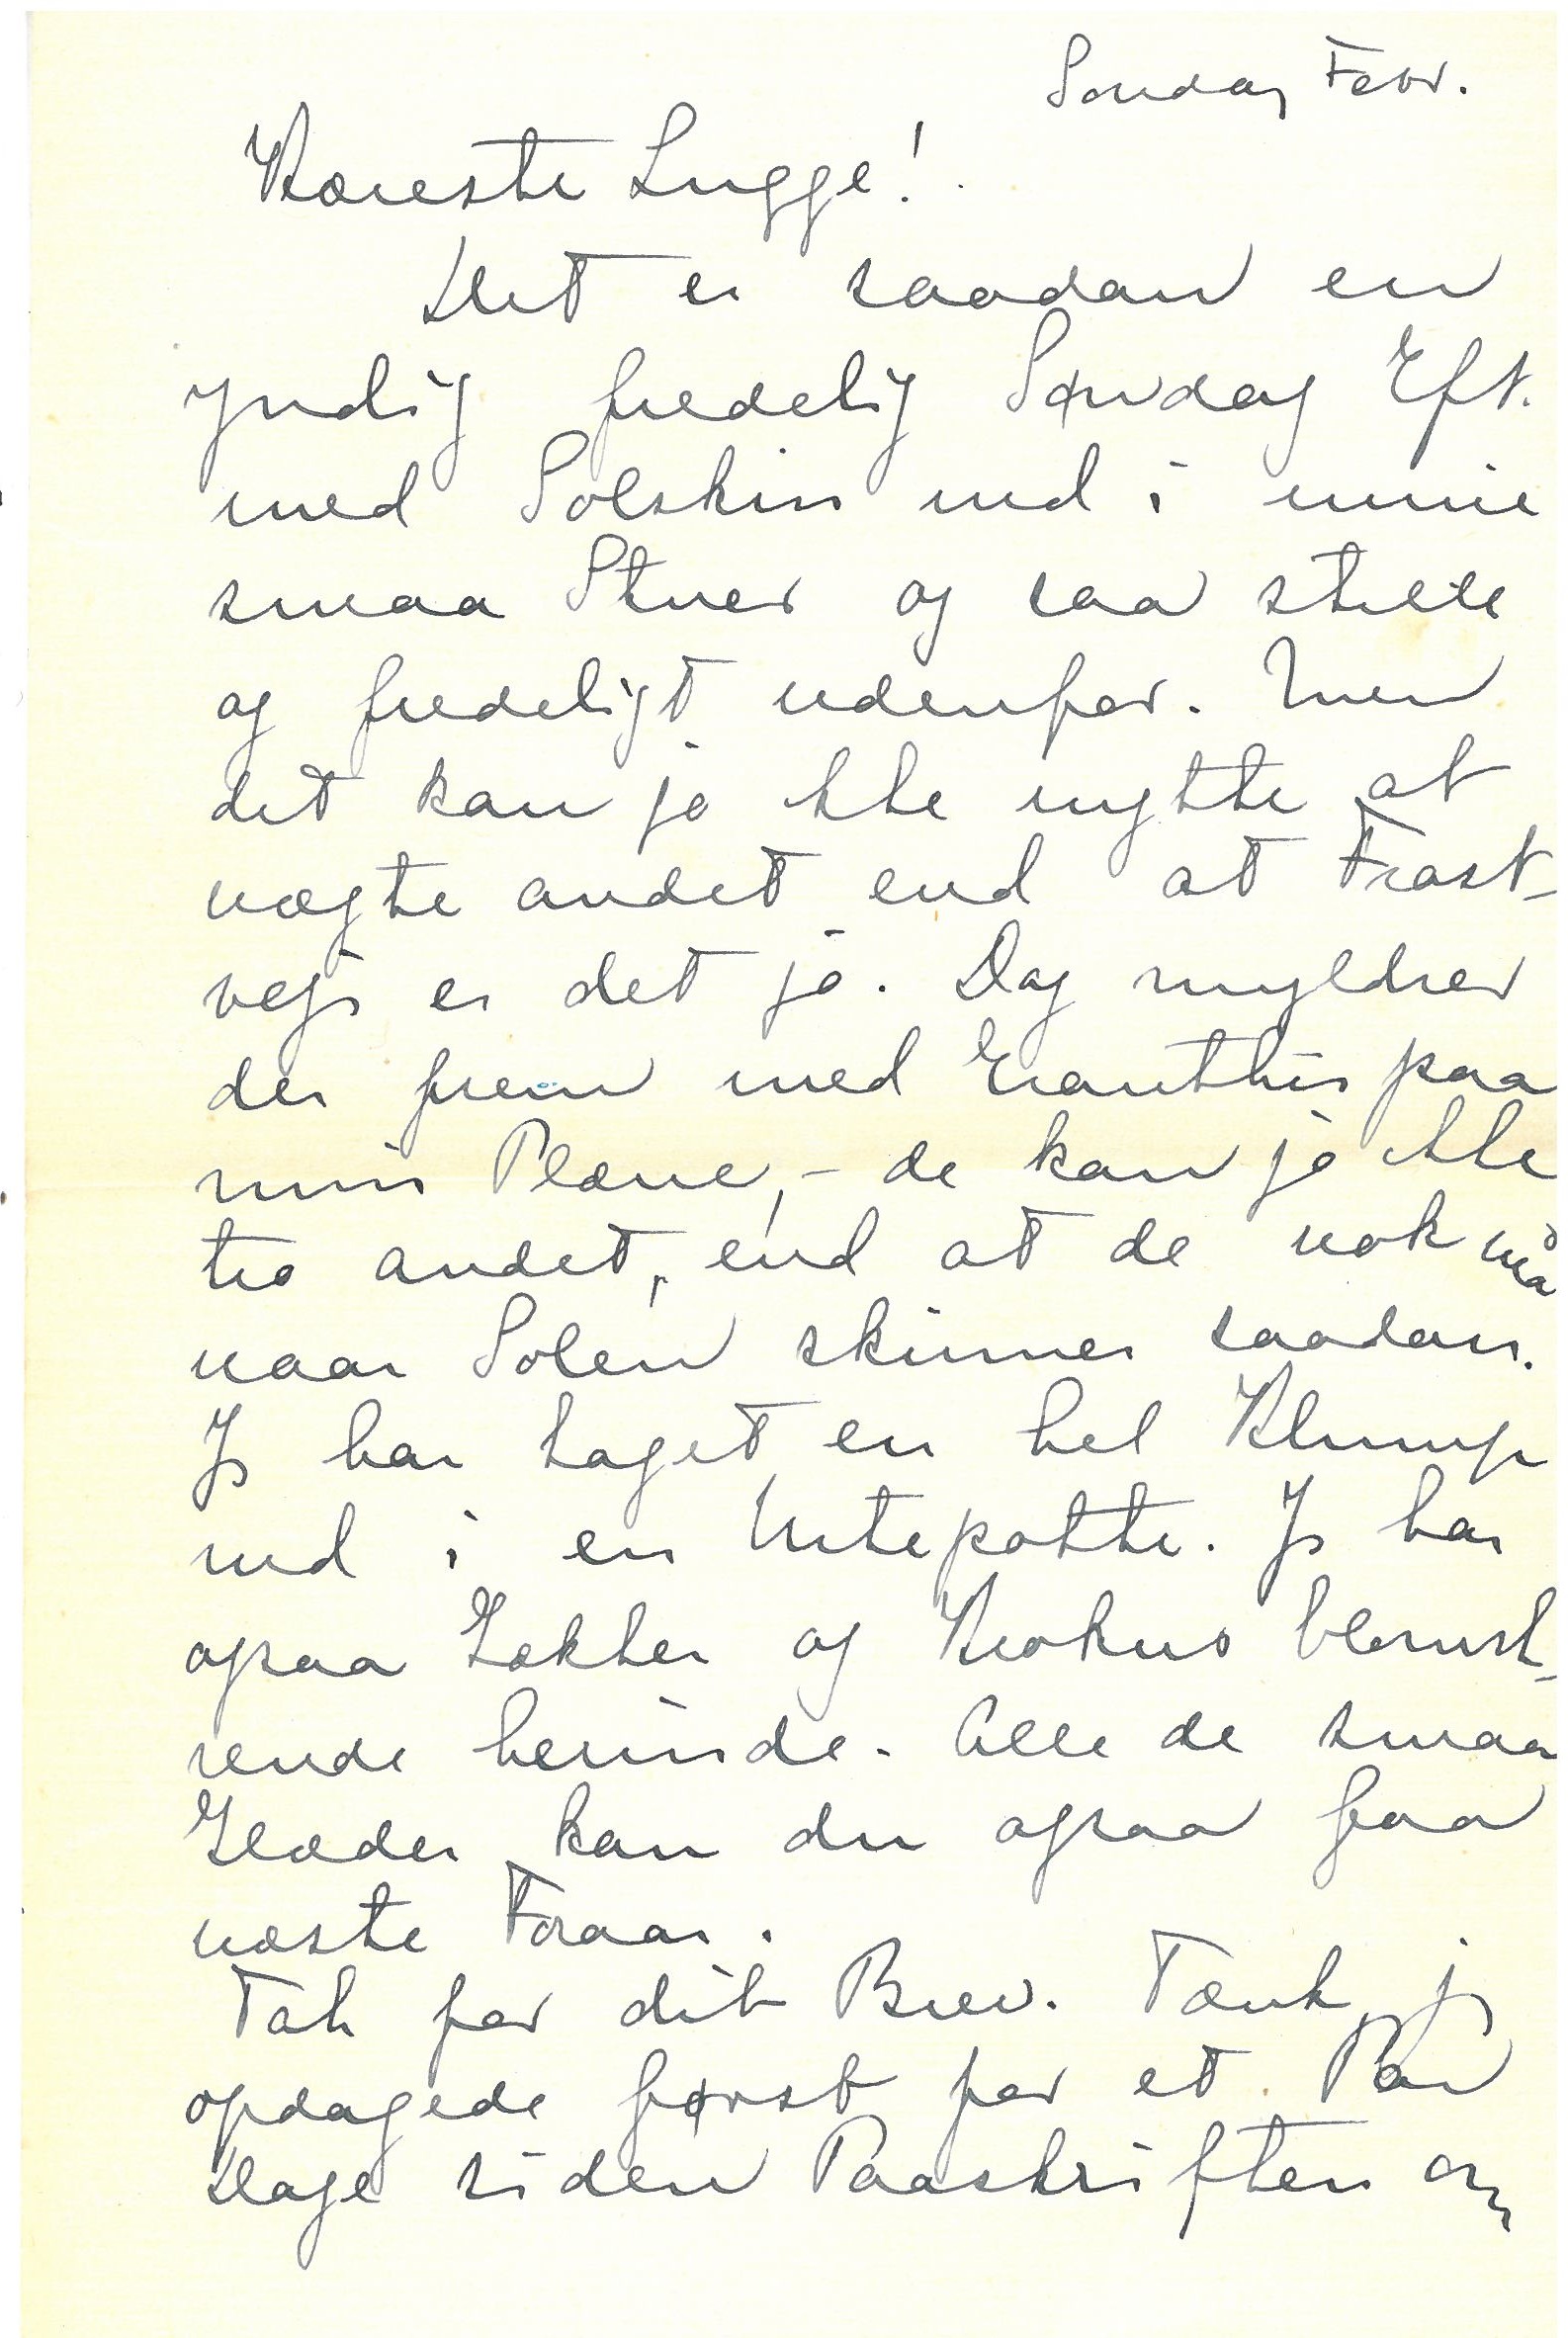 Søndag Febr.
Kæreste Lugge!
Det er saadan en
yndig fredelig Søndag Eft.
med Solskin ind i mine
smaa Stuer og saa stille
og fredeligt udenfor. Men
det kan jo ikke nytte at
nægte andet end at Frost-
vejr er det jo. Dog myldrer
der frem med Eranthis paa
min Plæne, - de kan jo ikke
tro andet, end at de nok maa
naar Solen skinner saadan.
Jeg har taget en hel Klump
ind i en Urtepotte. Jeg har
ogsaa Gækker og Krokus blomst-
rende herinde. Alle de smaa
Glæder kan du ogsaa faa
næste Foraar.
Tak for dit Brev. Tænk, jeg
opdagede først for et Par
Dage siden Paaskriften om